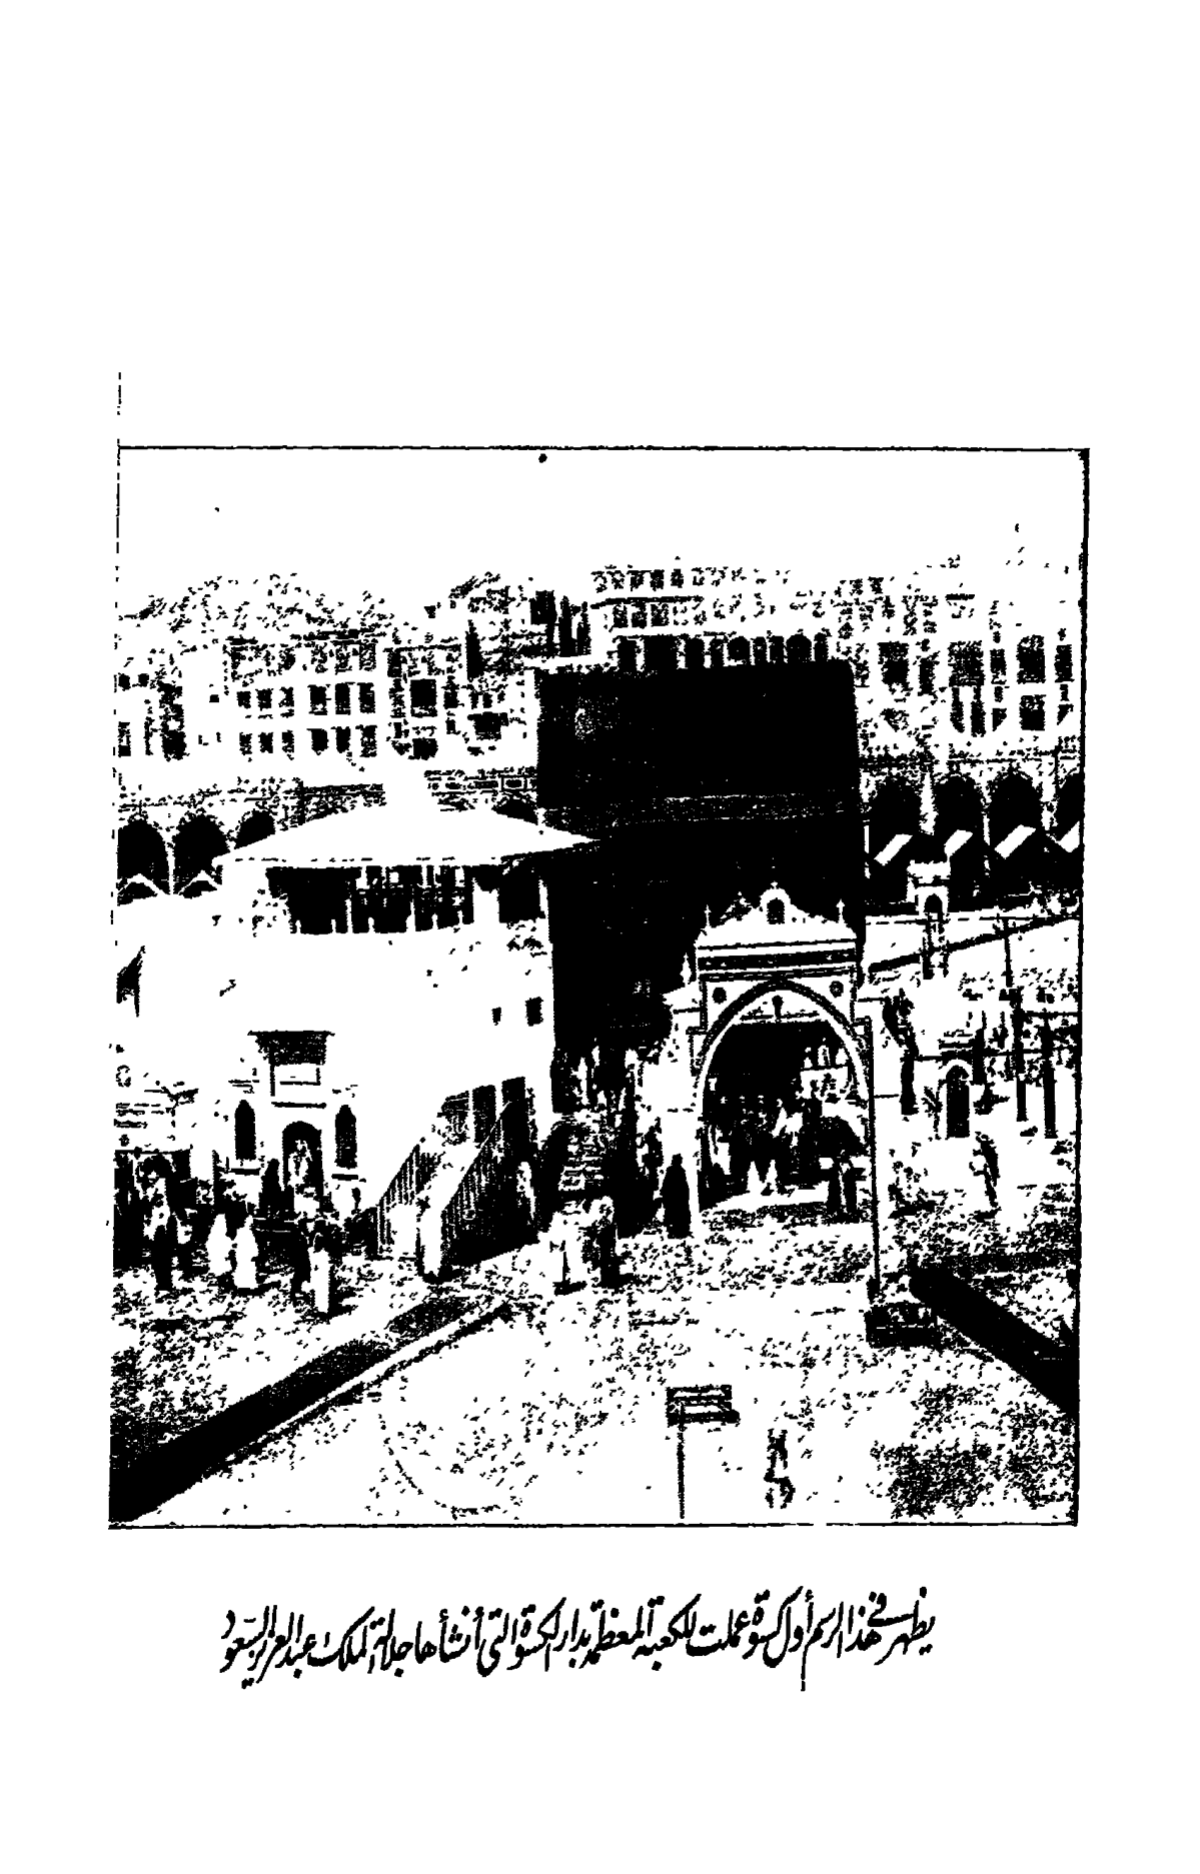 يظهر في هذا الرسم أول كسوة عملت للكعبة المعظمة بدار الكسوة التي أنشأها جلالة الملك عبد العزيز السعود